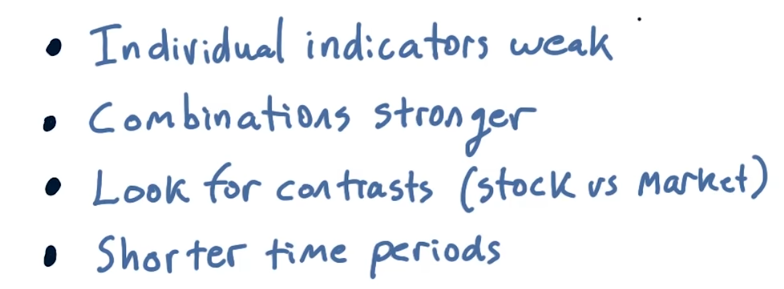 • Individual indicators weak
• Combinations stronger
• Look for contrasts (stock vs market)
• Shorter time periods